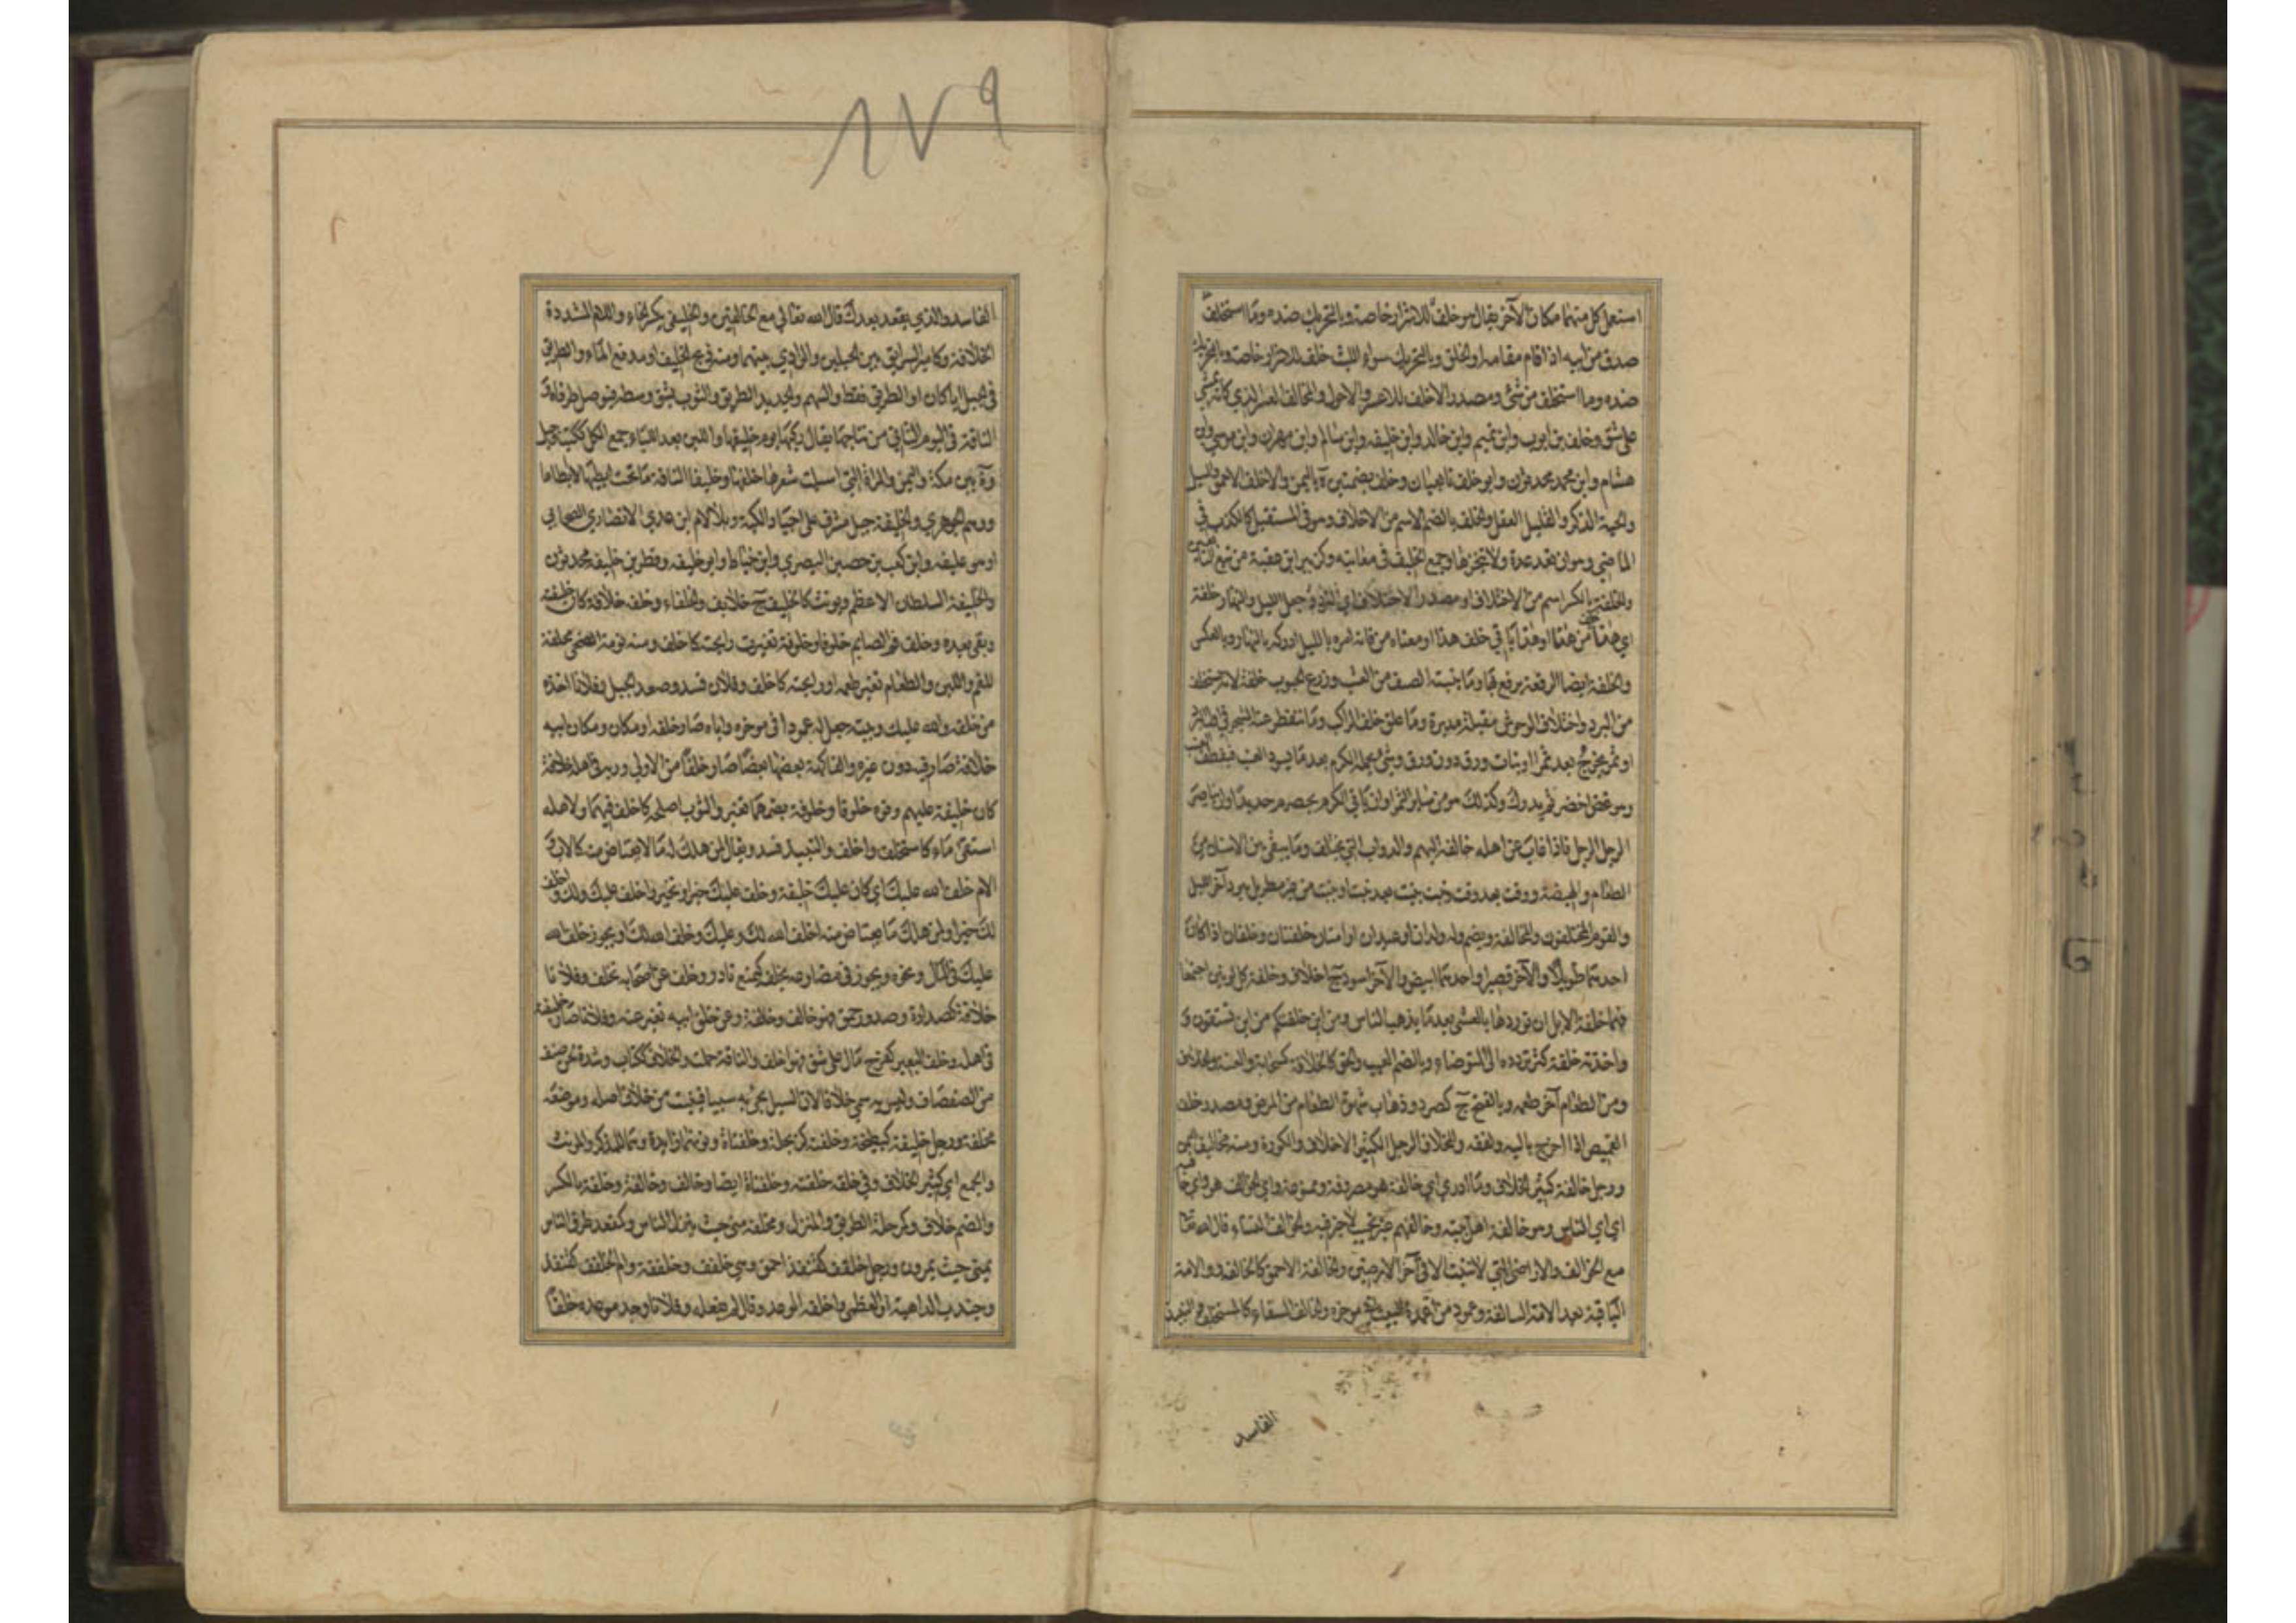 استعمل كل منهما مكان الآخر يقال هو خلف للاشرار خاصة وبالتحريك ضده وما استخلفت
صدق من ابيه اذا قام مقامه او الخلف وبالتحريك سواء الليث خلف للاشرار خاصة وبالتحريك
ضده وما استخلفت من شئ ومصدر الاخلف للاعسر والاحول والمخالف العسر الذي كانه يمشي
على شق وخلف بن ايوب وابن تميم وابن خالد وابن خليفه وابن سالم وابن مهران وابن موسى وابن
هشام وابن محمد محدثون وابو خلف تابعيان وخلف بضمتين ة باليمن والاخلف الاحمق والسيل
والحية الذكر والقليل العقل والخلف بالضم الاسم من الاخلاف وهو في المستقبل كالكذب في
الماضي وهو ان تعد عدة ولا تنجزها وجمع الخليف في معانيه وكزبير ابن عقبة من تبع التابعين
والخلفة بالكسر اسم من الاختلاف او مصدر الاختلاف اي التردد وجعل الليل والنهار خلفة
اي هذا من هذا او هذا يأتي خلف هذا او معناه من فاته امره بالليل ادركه بالنهار وبالعكس
والخلفة ايضا الرقعة يرقع بها وما ينبته الصيف من العشب وزرع الحبوب خلفة لانه يستخلف
من البر واختلاف الوحوش مقبلة مدبرة وما علق خلف الراكب وما يتفطر عنه الشجر في
او ثمر يخرج بعد ثمر او نبات ورق دون ورق وشئ يحمله الكرم بعد ما يسود العنب فيقطف العنب
وهو غض اخضر ثم يدرك وكذلك هو من سائر الثمر او ان ياتي الكرم بحصرم جديد او ان يناصر
الرجل الرجل فاذا غاب عن اهله خالفه اليهم والدواب التي تختلف وما يبقى بين الاسنان من
الطعام والهيضة ووقت بعد وقت ونبت ينبت بعد نبت او ينبت من غير مطر بل ببرد آخر الليل
والقوم المختلفون والمخالفة ويضم وله ولدان او عبدان او امتان خلفتان وخلفان اذا كان
احدهما طويلا والآخر قصيرا واحدهما ابيض والآخر اسود ج اخلاف وخلفة كل لونين اجتمعا
فهما خلفة الابل ان توردها بالعشي بعد ما يذهب الناس ومن اين خلفتكم من اين تستقون و
واخذته خلفة كثر تردده الى المتوضاء وبالضم العيب والحمق كالخلافة كسحابة والعته
ومن الطعام آخر طعمه وبالفتح ج كصرد وذهاب شهوة الطعام من المرض ومصدر خلف
القميص اذا اخرج باليه ولفقه والخلاف الرجل الكثير الاخلاف والكورة ومنه مخاليف اليمن
ورجل خالفة كثير الخلاف وما ادري اي خالفة هو مصروفة وممنوعة واي الخوالف هو واي
اي اي الناس وهو خالفة اهل بيته وخالفهم غير نجيب لا خير فيه والخوالف النساء قال الله تعالى
مع الخوالف والاراضي التي لا تنبت الا في آخر الارضين والخالفة الاحمق كالخالف والامة
الباقية بعد الامة السالفة وعمود من اعمدة البيت في مؤخره والخالف السقاء كالمستخلف والنبيذ
الفاسد
١٧٩
الفاسد والذي يقعد بعدك قال الله تعالى مع الخالفين والخليفى بكسر الخاء واللام المشددة
الخلافة وكامير الطريق بين الجبلين والوادي بينهما ومنه ذيخ الخليف او مدفع الماء والطريق
في الجبل ايا كان او الطريق فقط والسهم والحديد الطرير والثوب يشق وسطه فيوصل طرفاه و
الناقة في اليوم الثاني من نتاجها يقال ركبها يوم خليفها واللبن بعد اللباء جمع الكل ككتب وجبل
وة بين مكة واليمن والمراة التي اسبلت شعرها خلفها وخليفا الناقة ما تحت ابطيها لا ابطاها
ووهم الجوهري والخليفة جبل مشرف على اجياد الكبير وبلا لام ابن عدي الانصاري الصحابي
او هو عليفه وابن كعب بن حصين البصري وابن خياط وابو خليفه وفطر بن خليفه محدثون
والخليفة السلطان الاعظم ويونث كالخليف ج خلايف وخلفاء وخلفه خلافة كان خليفته
وبقي بعده وخلف فم الصايم خلوفا وخلوفة تغيرت رايحته كاخلف ومنه نومة الضحى مخلفة
للفم واللبن والطعام تغير طعمه او رايحته كاخلف وفلان فسد وصعد الجبل وفلانا اخذه
من خلفه والله عليك وبيته جعل له عمودا في موخره واباه صار خلفه او مكانه ومكان ابيه
خلافة صار فيه دون غيره والفاكهة بعضها بعضا صار خلفا من الاولى وربه في اهله خلافة
كان خليفة عليهم وفوه خلوفا وخلوفة بضمهما تغير والثوب اصلحه كاخلف فيهما ولاهله
استقى ماء كاستخلف واخلف والنبيذ فسد ويقال لمن هلك له ما لا يعتاض منه كالاب و
الام خلف الله عليك اي كان عليك خليفة وخلف عليك خيرا وبخير واخلف عليك ولك واخلف
لك خيرا ولمن هلك ما يعتاض منه اخلف الله لك وعليك وخلف الله لك او يجوز خلف الله
عليك في المال ونحوه ويجوز في مضارعه يخلف كيمنع نادر وخلف عن اصحابه تخلف وفلانا
خلافة كصدارة وصدور حمق فهو خالف وخالفة وعن خلق ابيه تغير عنه وفلانا صار خليفته
في اهله وخلف البعير كفرح مال على شق فهو اخلف والناقة حملت والخلاف ككتاب وشده لحن صنف
من الصفصاف وليس به سمي خلافا لان السيل يجئ به سبيا فينبت من خلاف اصله وموضعه
مخلفة ورجل خليفة كبطيخة وخلفنة كربحلة وخلفناة ونونهما زائدة وهما للمذكر والمونث
والجمع اي كثير الخلاف وفي خلقه خلفنة وخلفناة ايضا وخالف وخالفة وخلفة بالكسر
والضم خلاف وكمرحلة الطريق والمنزل ومخلفة منى حيث ينزل الناس وكمقعد طرق الناس
بمنى حيث يمرون ورجل خلفف كقنفذ احمق وهي خلفف وخلففة وام الخلفف كقنفذ
وجندب الداهية او العظمى واخلفه الوعد وقال لم يفعله وفلانا وجد موعده خلفا